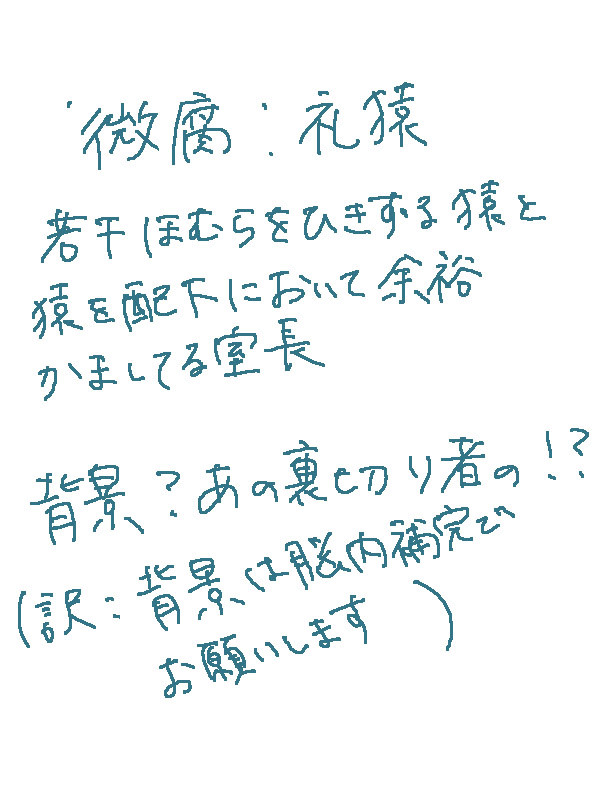 微腐:礼猿
若干ほむらをひきずる猿と
猿を配下において余裕
かましてる室長
背景?あの裏切り者の!?
(訳:背景は脳内補完で
お願いします)